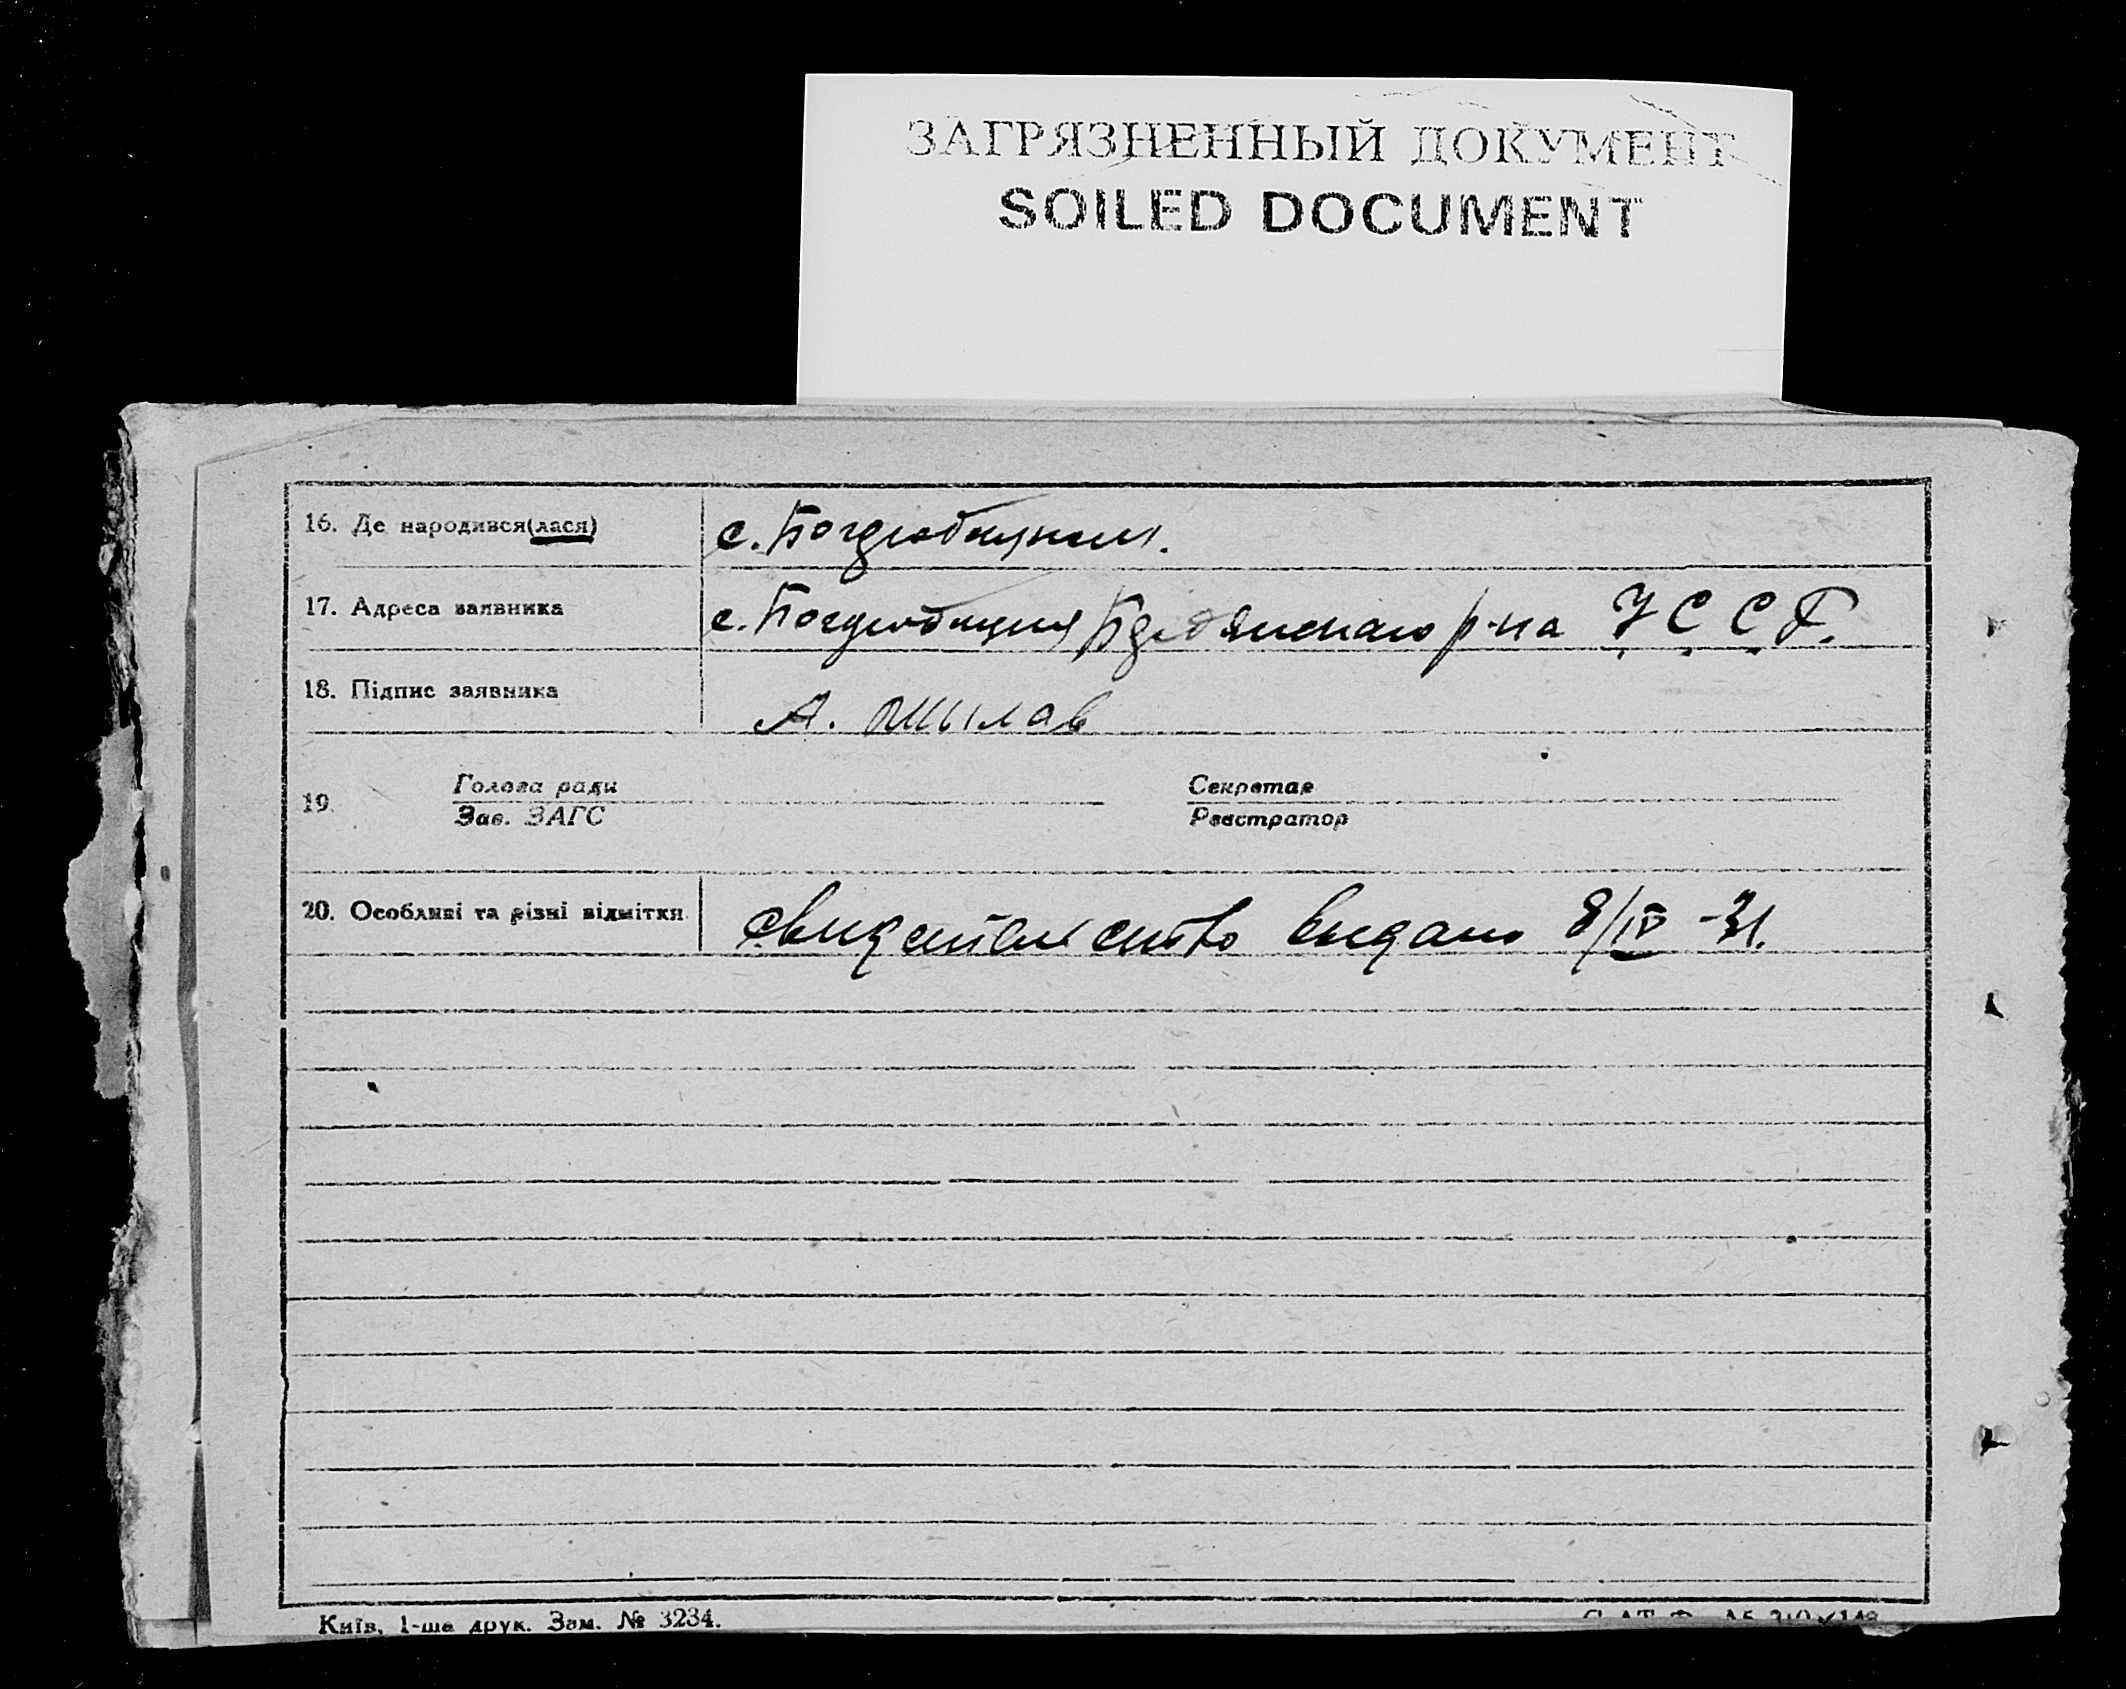 ЗАГРЯЗНЕННЫЙ ДОКУМЕНТ
SOILED DOCUMENT
16. Де народився(лася)
с.
17. Адреса заявника
с. р-на УССР.
18. Підпис заявника
А.
19. Голова ради Секретар
Зав. ЗАГС Реєстратор
20. Особливі та різні відмітки
свидетельство выдано 8/IV -31.
Київ, 1-ша друк. Зам. № 3234.